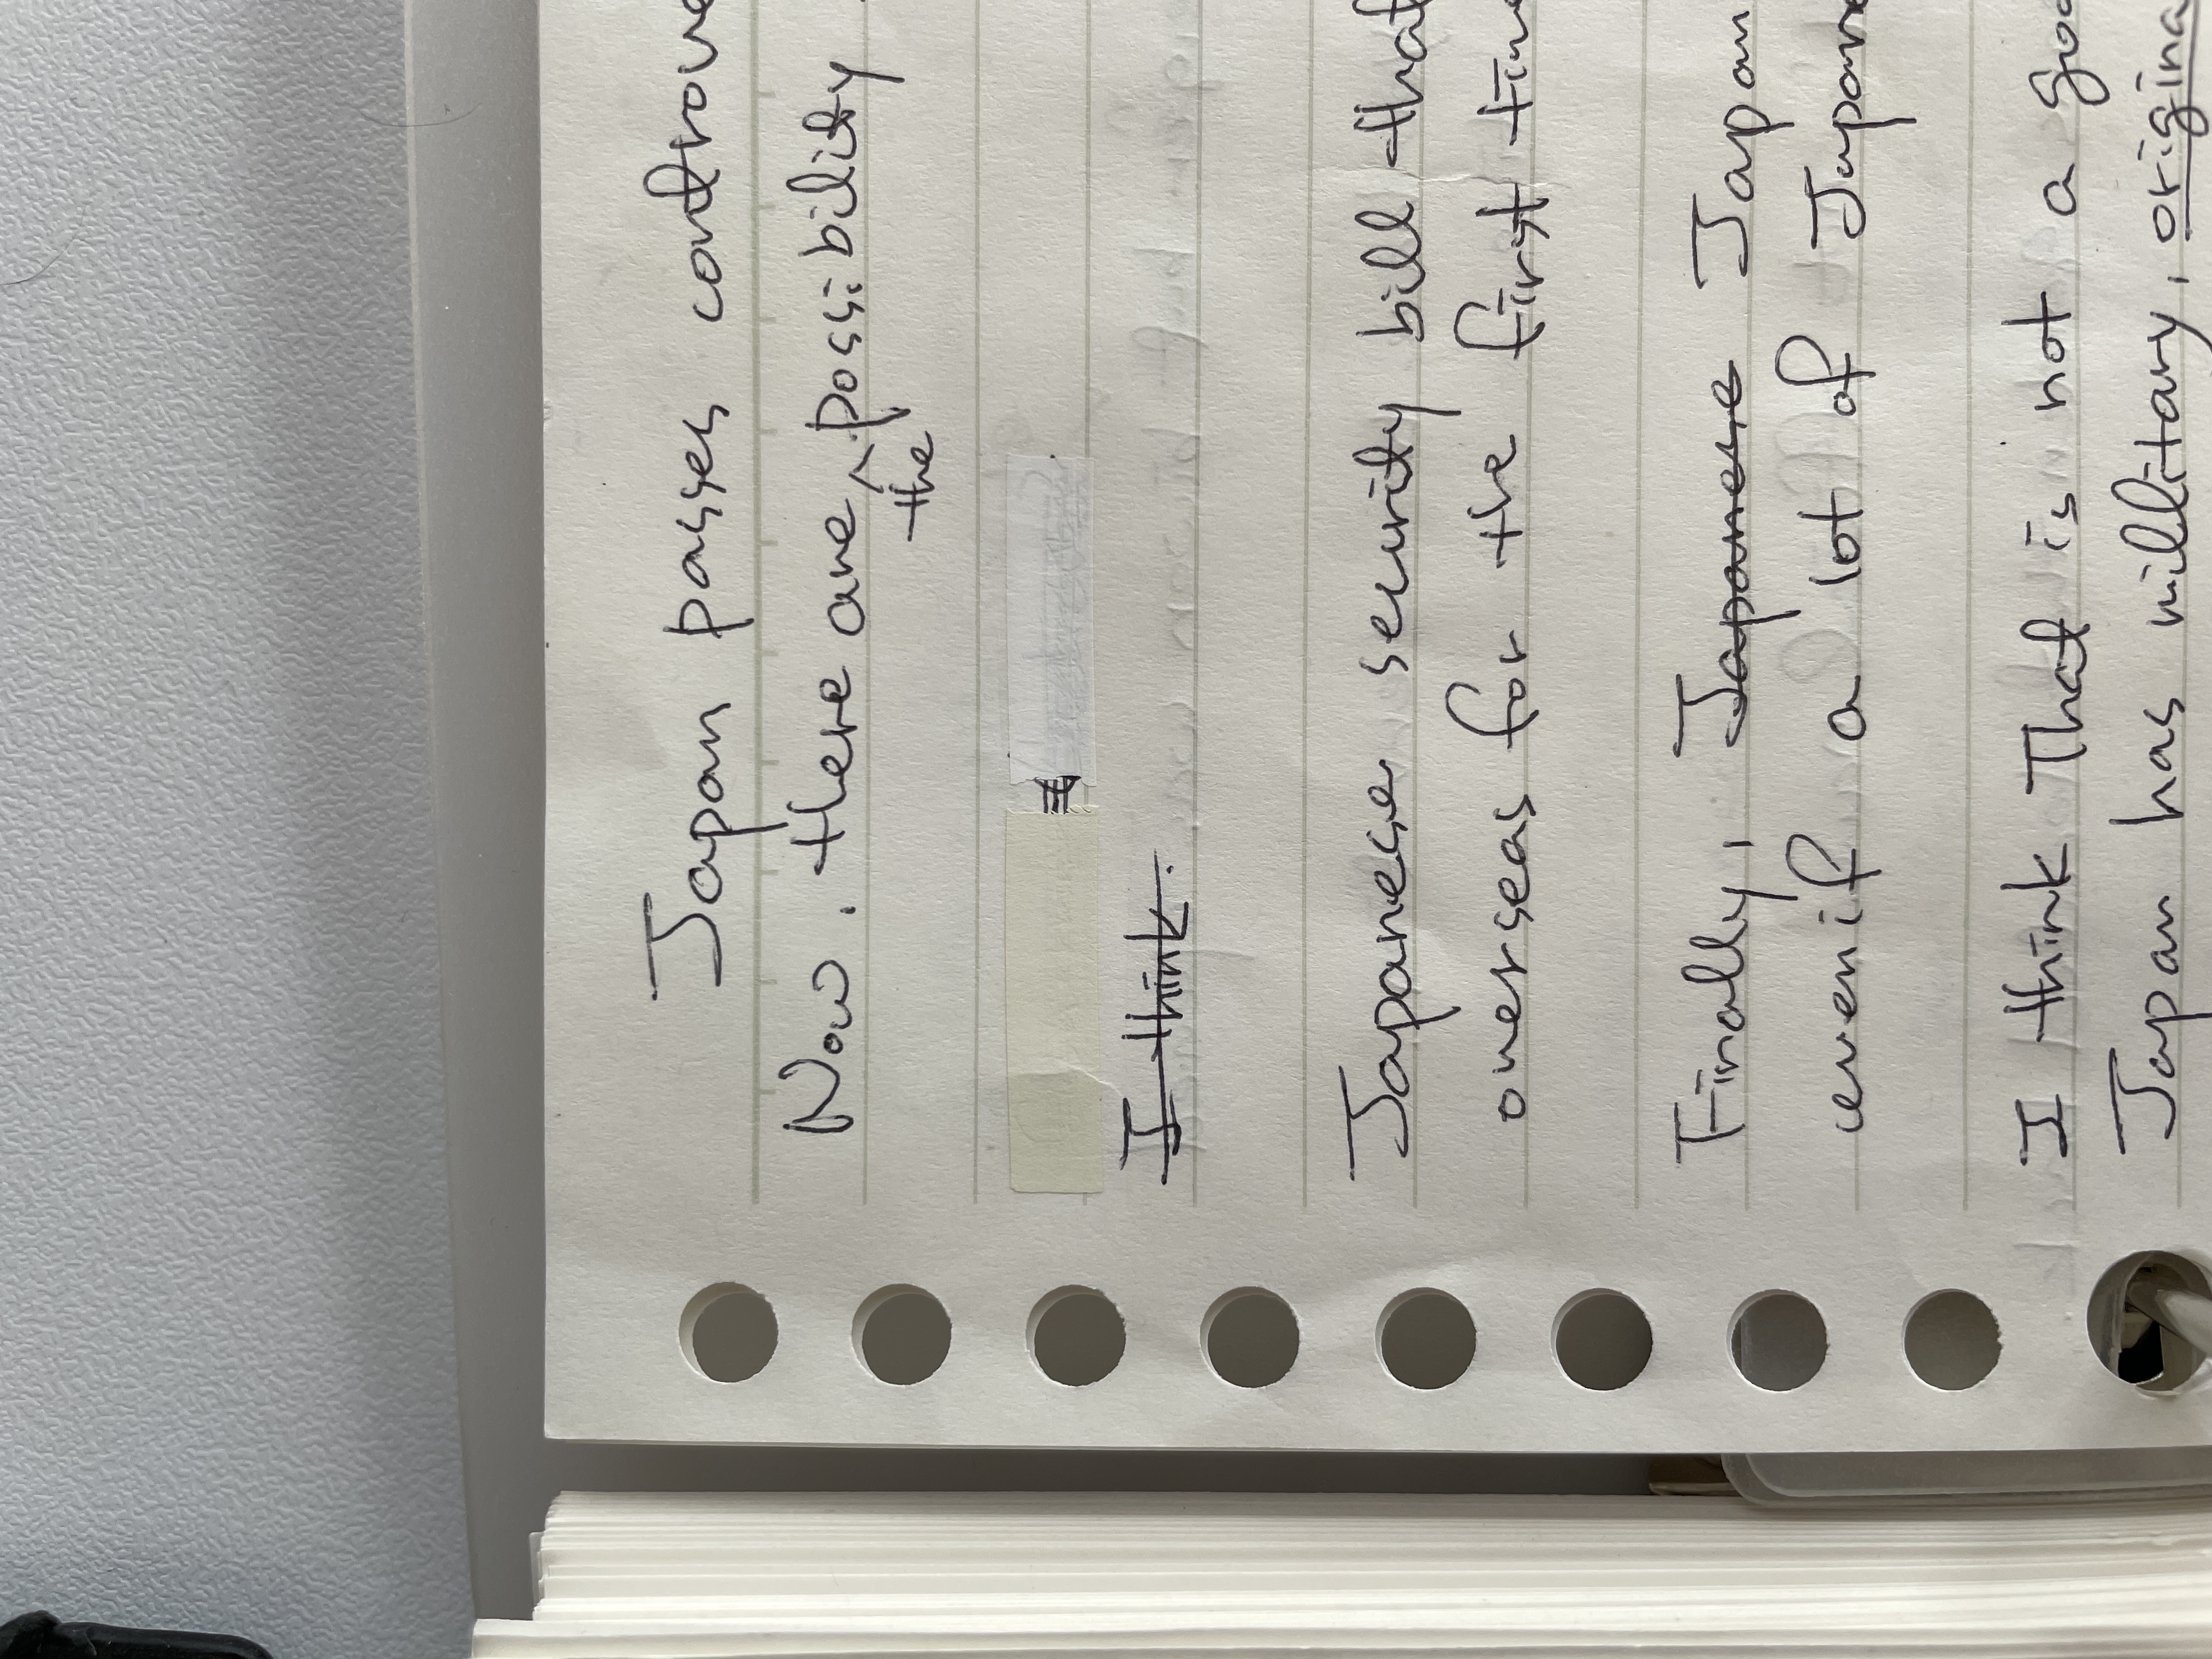 Japan passes controve
Now. there are ^ possibility
the
I think.
Japanese security bill that
overseas for the first time
Finally, Japanese Japan
evenif a lot of Japane
I think That is not a goo
Japan has millitary, origina